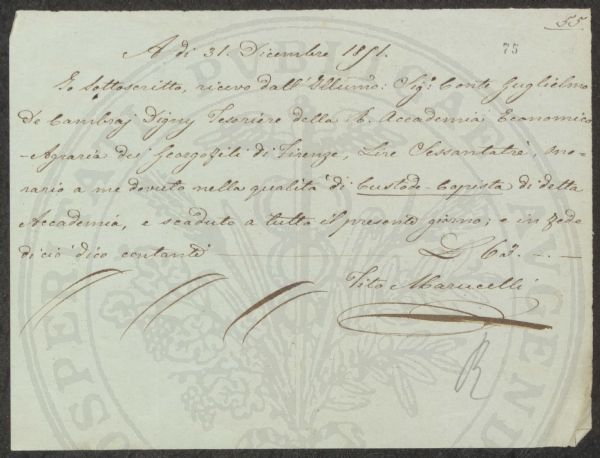 55
75
A dì 31. Dicembre 1851.
Io sottoscritto, ricevo dall'Illumo: Sig: Conte Guglielmo
De Cambraj Digny Tesoriere della R. Accademia Economico
-Agraria dei Georgofili di Firenze, Lire Sessantatrè, ono-
rario a me dovuto nella qualità di Custode-Copista di detta
Accademia, e scaduto a tutto il presente giorno; e in fede
di ciò dico contanti — L 63. -. -
Tito Marucelli
R
PROSPERITATI PUBLICAE AUGENDAE